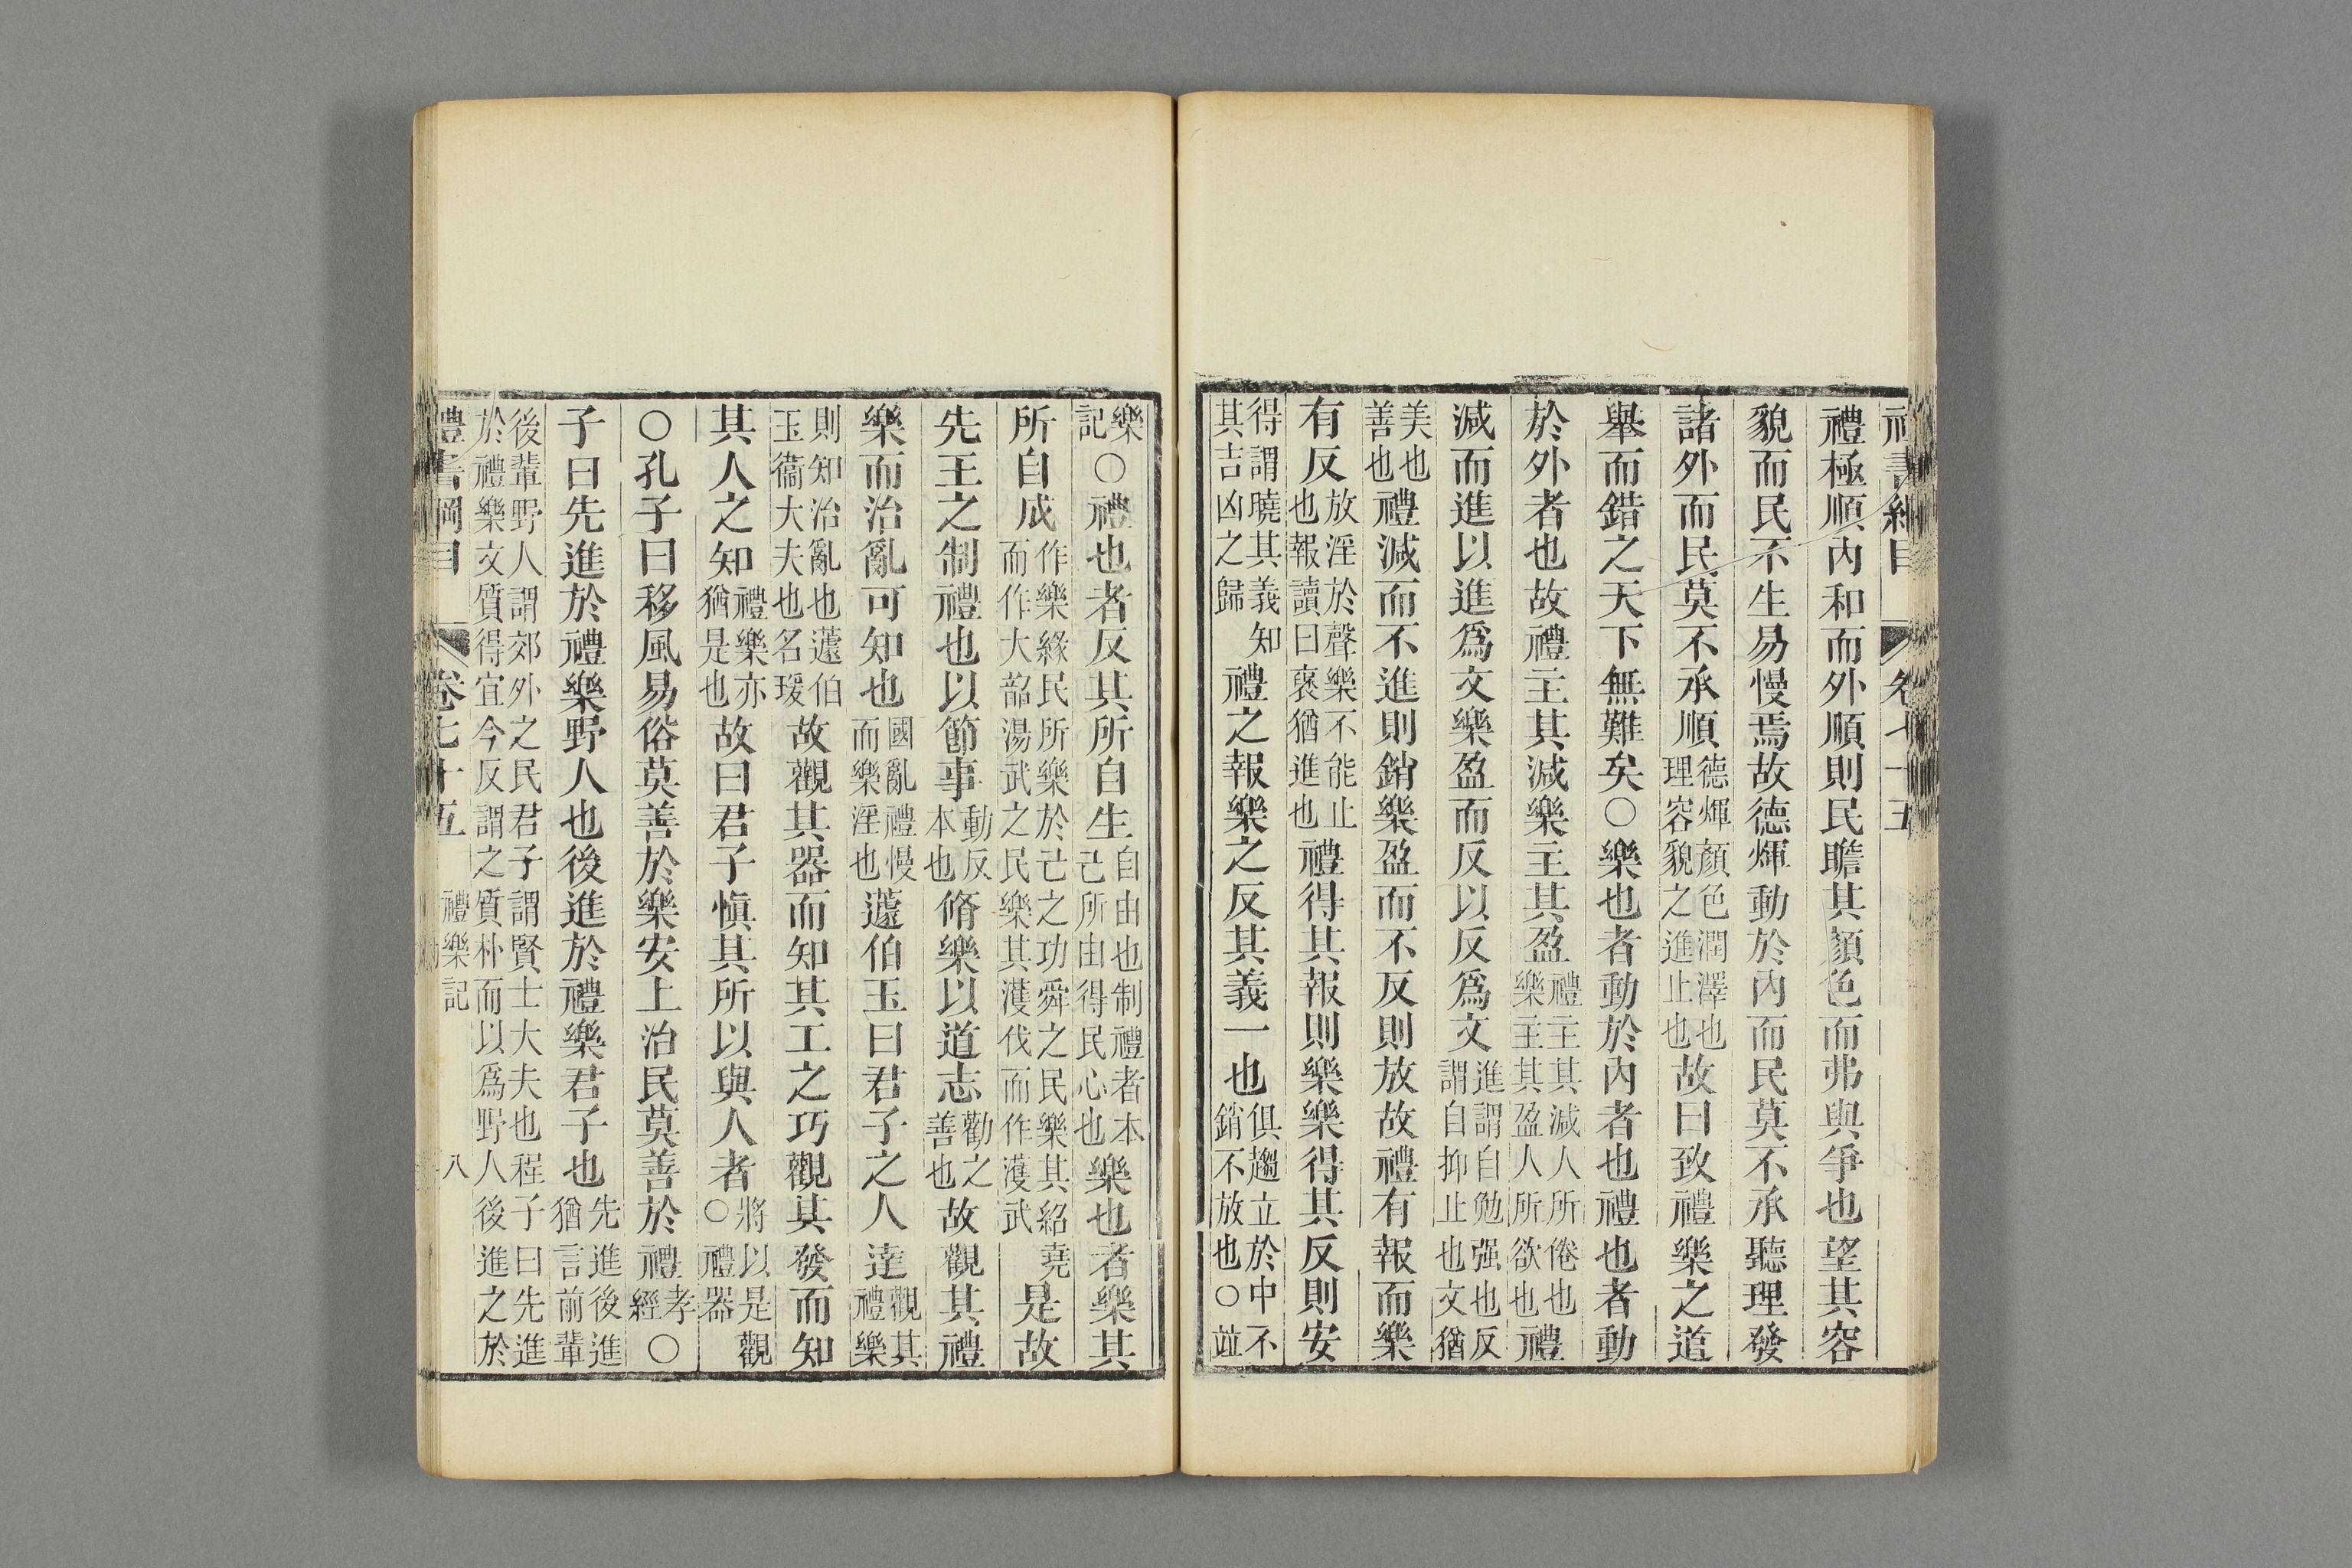 禮書綱目 卷七十五
禮極順內和而外順則民瞻其顏色而弗與爭也望其容
貌而民不生易慢焉故德煇動於內而民莫不承聽理發
諸外而民莫不承順德煇顏色潤澤也理容貌之進止也故曰致禮樂之道
舉而錯之天下無難矣○樂也者動於內者也禮也者動
於外者也故禮主其減樂主其盈禮主其減人所倦也樂主其盈人所欲也禮
減而進以進爲文樂盈而反以反爲文進謂自勉强也反謂自抑止也文猶
美也善也禮減而不進則銷樂盈而不反則放故禮有報而樂
有反放淫於聲樂不能止也報讀曰褒猶進也禮得其報則樂樂得其反則安
得謂曉其義知其吉凶之歸禮之報樂之反其義一也俱趨立於中不銷不放也○竝
樂記○禮也者反其所自生自由也制禮者本己所由得民心也樂也者樂其
所自成作樂緣民所樂於己之功舜之民樂其紹堯而作大韶湯武之民樂其濩伐而作濩武是故
先王之制禮也以節事動反本也脩樂以道志勸之善也故觀其禮
樂而治亂可知也國亂禮慢而樂淫也蘧伯玉曰君子之人達觀其禮樂
則知治亂也蘧伯玉衞大夫也名瑗故觀其器而知其工之巧觀其發而知
其人之知禮樂亦猶是也故曰君子愼其所以與人者將以是觀○禮器
○孔子曰移風易俗莫善於樂安上治民莫善於禮孝經○
子曰先進於禮樂野人也後進於禮樂君子也先進後進猶言前輩
後輩野人謂郊外之民君子謂賢士大夫也程子曰先進於禮樂文質得宜今反謂之質朴而以爲野人後進之於
禮書綱目 卷七十五 禮樂記 八